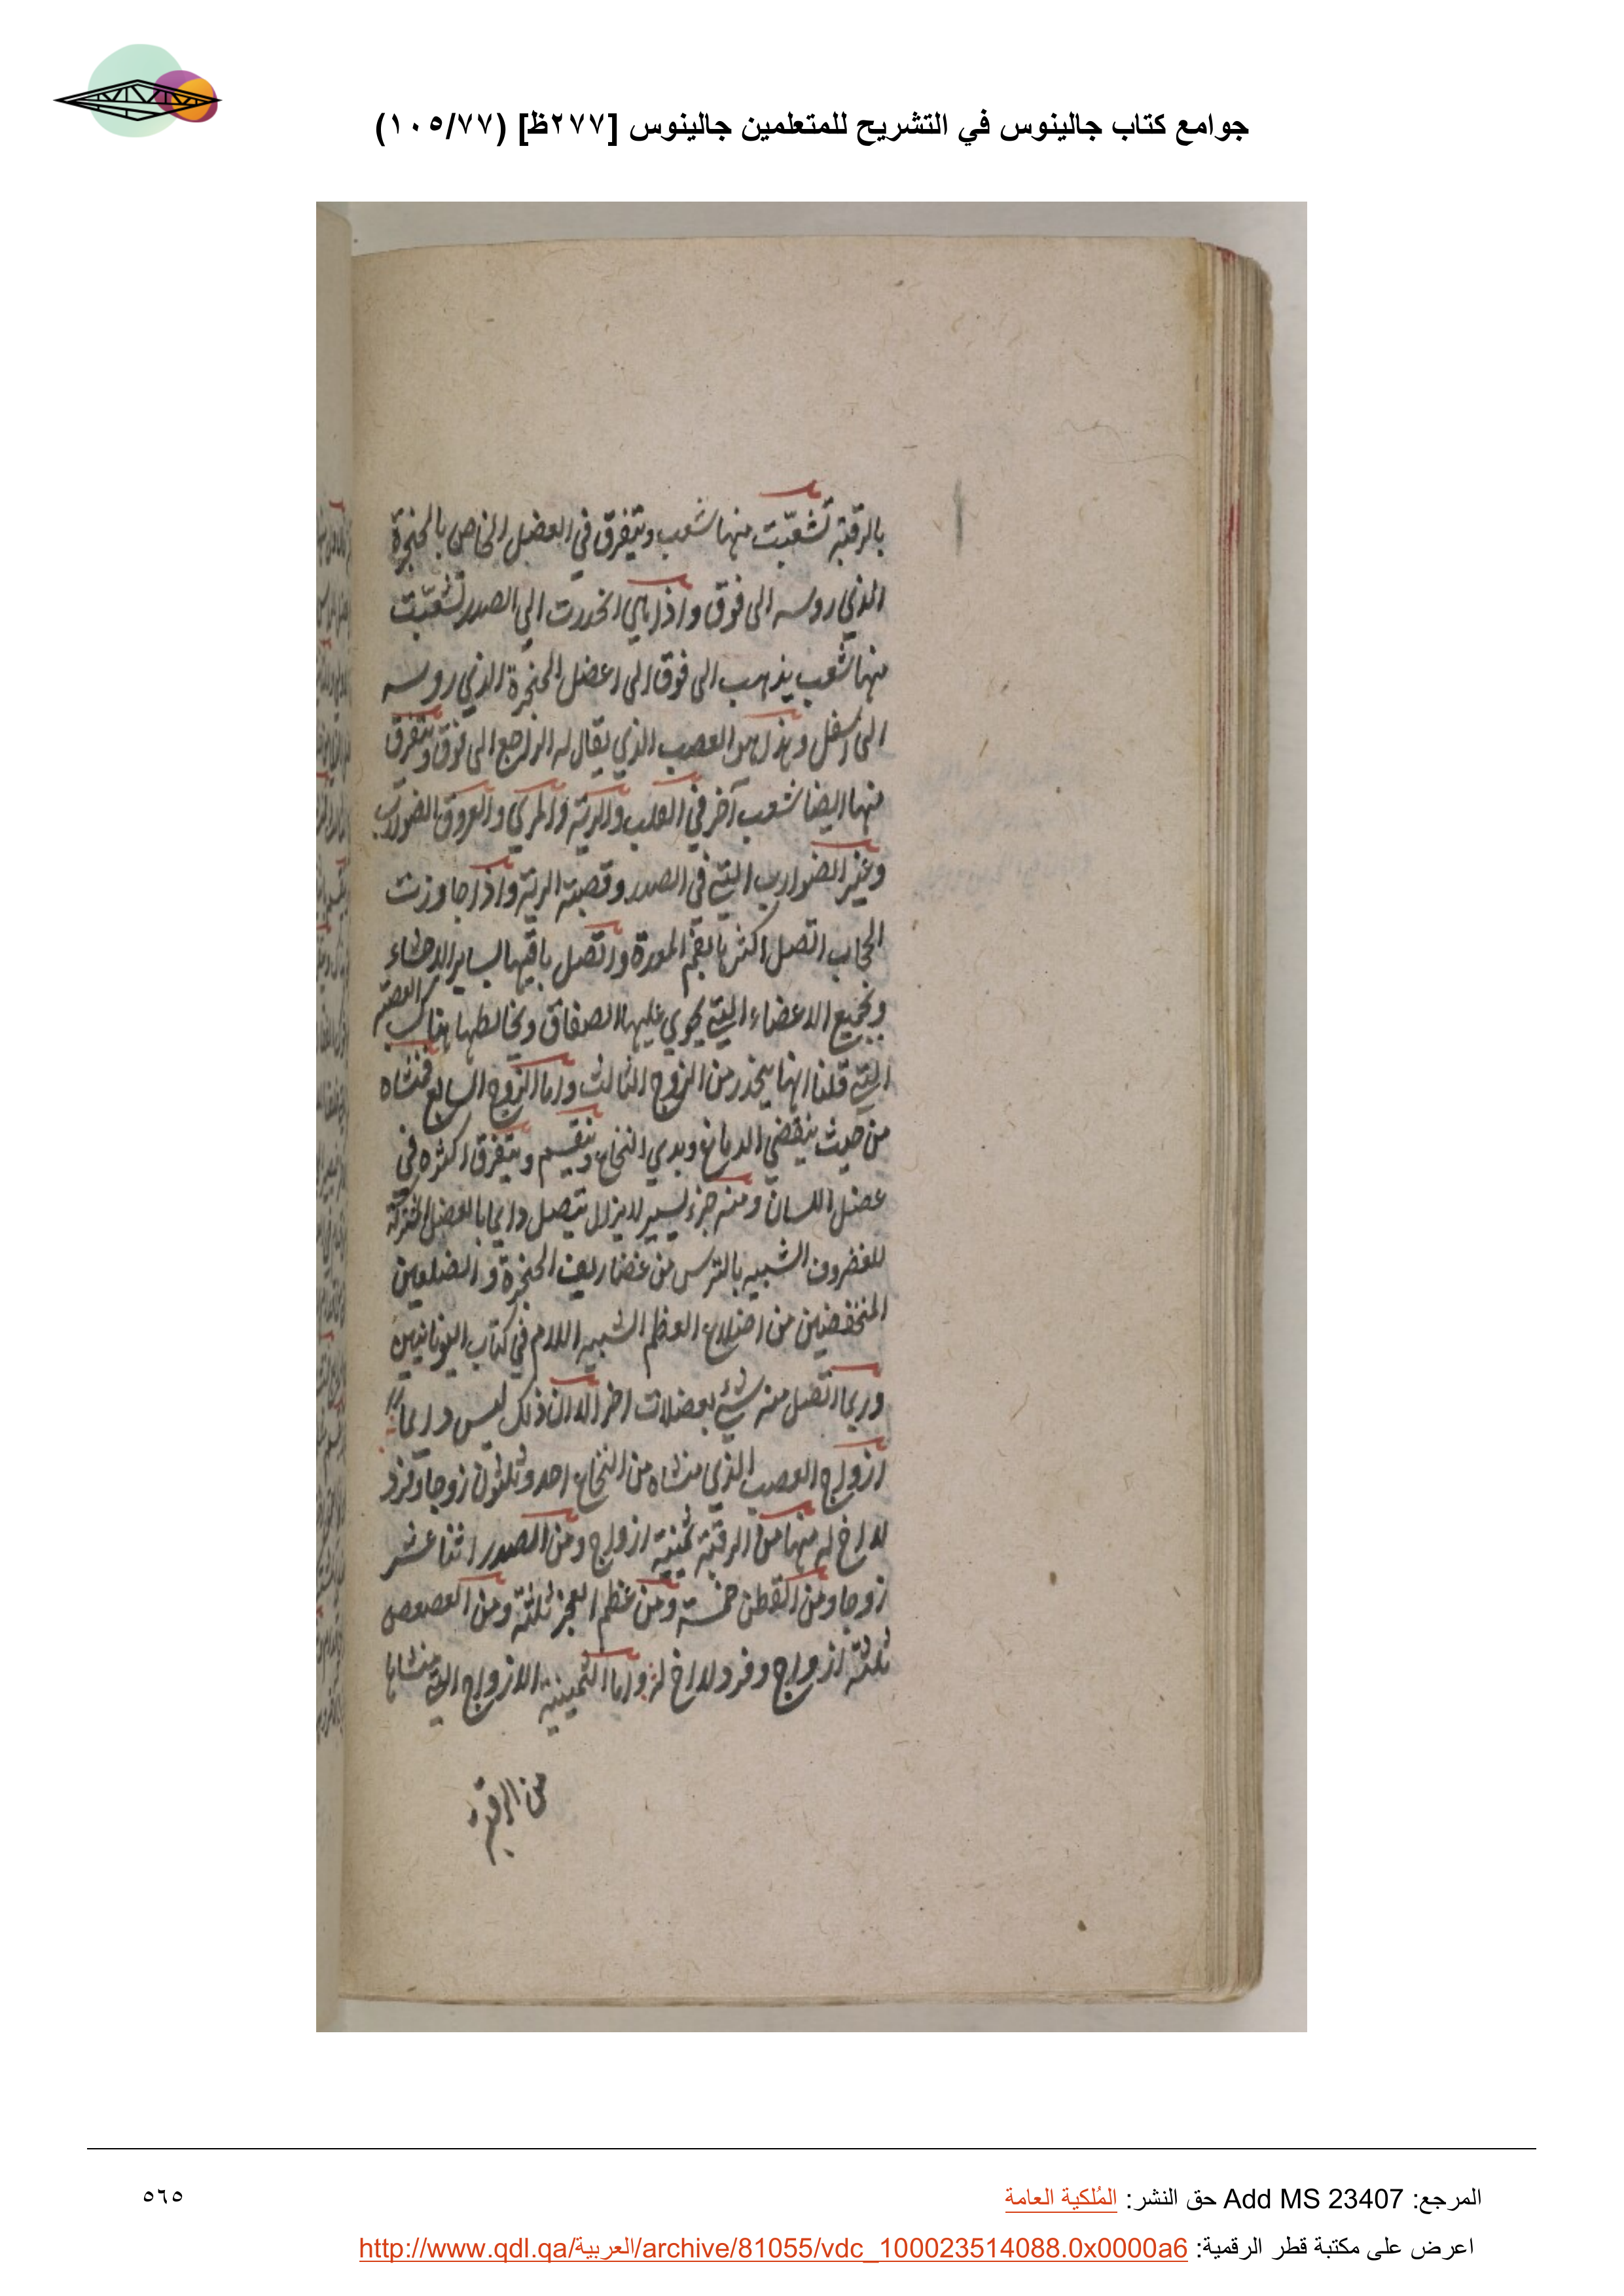 جوامع كتاب جالينوس في التشريح للمتعلمين جالينوس [٢٧٧ظ] (١٠٥/٧٧)
بالرقبة تشعّبت منها شعب ويتفرق في العضل الخاص بالحنجرة
الذي روسه الى فوق واذا هي انحدرت الى الصدر تشعّبت
منها شعب يذهب الى فوق الى اعضل الحنجرة الذي روسه
الى اسفل وهذا هو العصب الذي يقال له الراجع الى فوق ويتفرق
منها ايضا شعب آخر في القلب والرية والمري والعروق الضوارب
وغير الضوارب التي في الصدر وقصبة الرية واذا جاوزت
الحجاب اتصل اكثرها بفم المعدة واتصل باقيها بساير الاحشاء
وبجميع الاعضاء التي يحوي عليها الصفاق ويخالطها هناك العصبة
التي قلنا انها ينحدر من الزوج الثالث واما الزوج السابع فمنشاه
من حيث ينقضي الدماغ وبدي النخاع وينقسم ويتفرق اكثره في
عضل اللسان ومنه جزء يسير لا يزال يتصل دايما بالعضل المشتركة
للغضروف الشبيه بالترس من غضاريف الحنجرة والضلعين
المنخفضين من اضلاع العظم الشبيه اللام في كتاب اليونانيين
وربما اتصل منه شيء بعضلات اخر الا ان ذلك ليس دايما
ازواج العصب الذي منشاه من النخاع احد وثلثون زوجا وفرد
لا اخ له منها من الرقبة ثمنية ازواج ومن الصدر اثنا عشر
زوجا ومن القطن خمسة ومن عظم العجز ثلثة ومن العصعص
ثلثة ازواج وفرد لا اخ له واما الثمينية الازواج التي منشاها
من الرقبة
المرجع: Add MS 23407 حق النشر: المُلكية العامة
٥٦٥
اعرض على مكتبة قطر الرقمية: http://www.qdl.qa/العربية/archive/81055/vdc_100023514088.0x0000a6